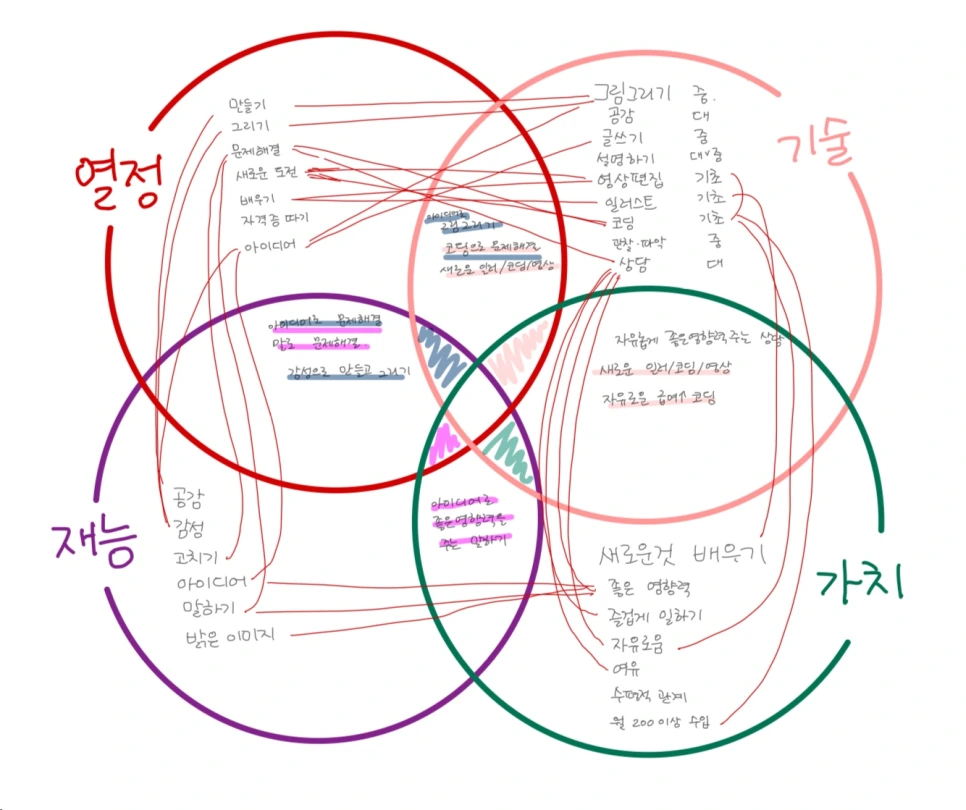 열정
만들기
그리기
문제해결
새로운 도전
배우기
자격증 따기
아이디어
기술
그림그리기 중.
공감 대
글쓰기 중
설명하기 대v중
영상편집 기초
일러스트 기초
코딩 기초
관찰·파악 중
상담 대
아이디어로
그림그리기
코딩으로 문제해결
새로운 일러/코딩/영상
아이디어로 문제해결
말로 문제해결
감성으로 만들고 그리기
자유롭게 좋은영향력주는 상담
새로운 일러/코딩/영상
자유로운 급여↑ 코딩
재능
공감
감성
고치기
아이디어
말하기
밝은 이미지
아이디어로
좋은영향력을
주는 말하기
가치
새로운것 배우기
좋은 영향력
즐겁게 일하기
자유로움
여유
수평적 관계
월 200이상 수입